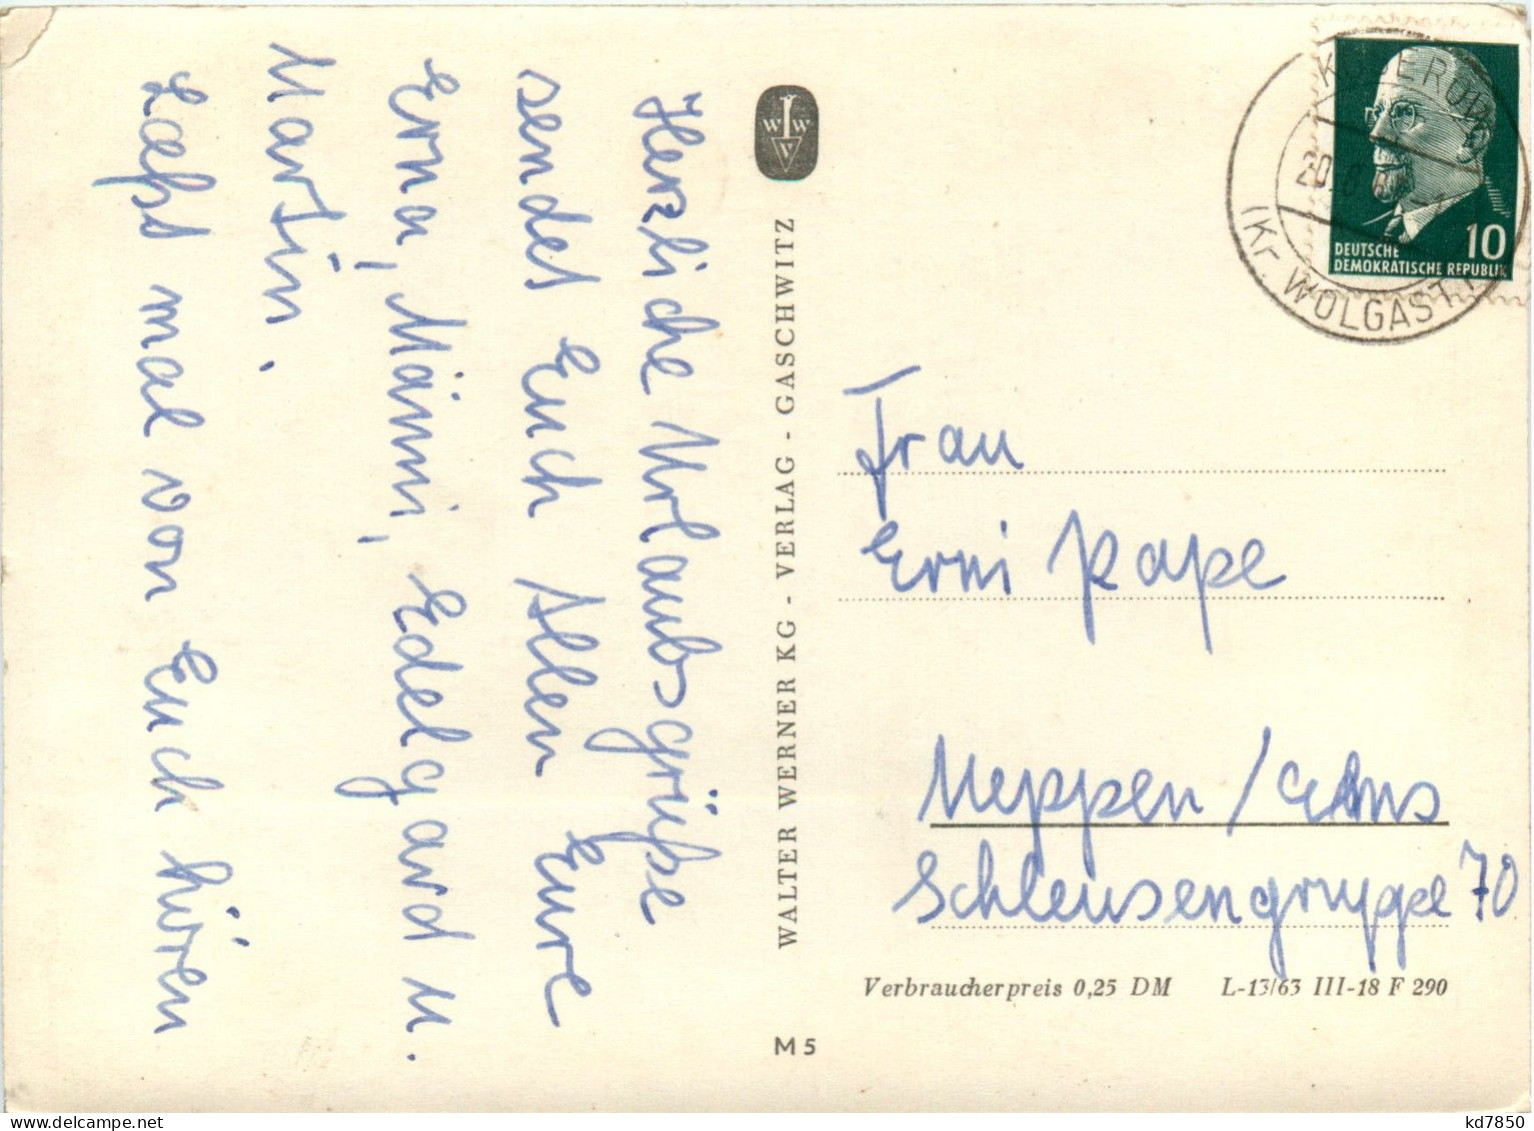 Herzliche Urlaubsgrüße
sendet Euch Allen Eure
Erna, Männi, Edelgard u.
Martin.
Laßt mal von Euch hören
W W W
WALTER WERNER KG - VERLAG - GASCHWITZ
M 5
KOSEROW
20.8.6
(Kr. WOLGAST)
10
DEUTSCHE
DEMOKRATISCHE REPUBLIK
Frau
Erni Pape
Meppen / Ems
Schleusengruppe 70
Verbraucherpreis 0,25 DM L-13/63 III-18 F 290
kd7850